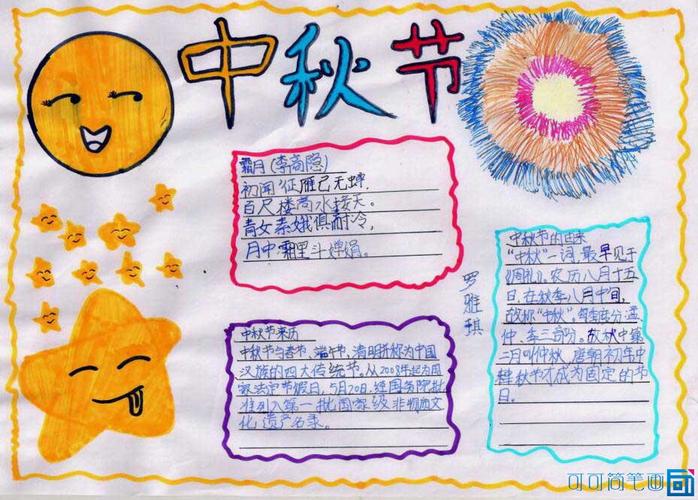 中秋节
霜月(李商隐)
初闻征雁已无蝉,
百尺楼高水接天。
青女素娥俱耐冷,
月中霜里斗婵娟。
罗雅琪
中秋节的由来
“中秋”一词,最早见于
《周礼》。农历八月十五
日,在秋季八月中间,
故称“中秋”。每季度分孟
仲、季三部分。故秋中第
二月叫仲秋,唐朝初年中
秋节才成为固定的节
日。
中秋节来历
中秋节与春节、端午节、清明并称为中国
汉族的四大传统节,从2008年起为国
家法定节假日,5月20日,经国务院批
准列入第一批国家级非物质文
化遗产名录。
可可简笔画